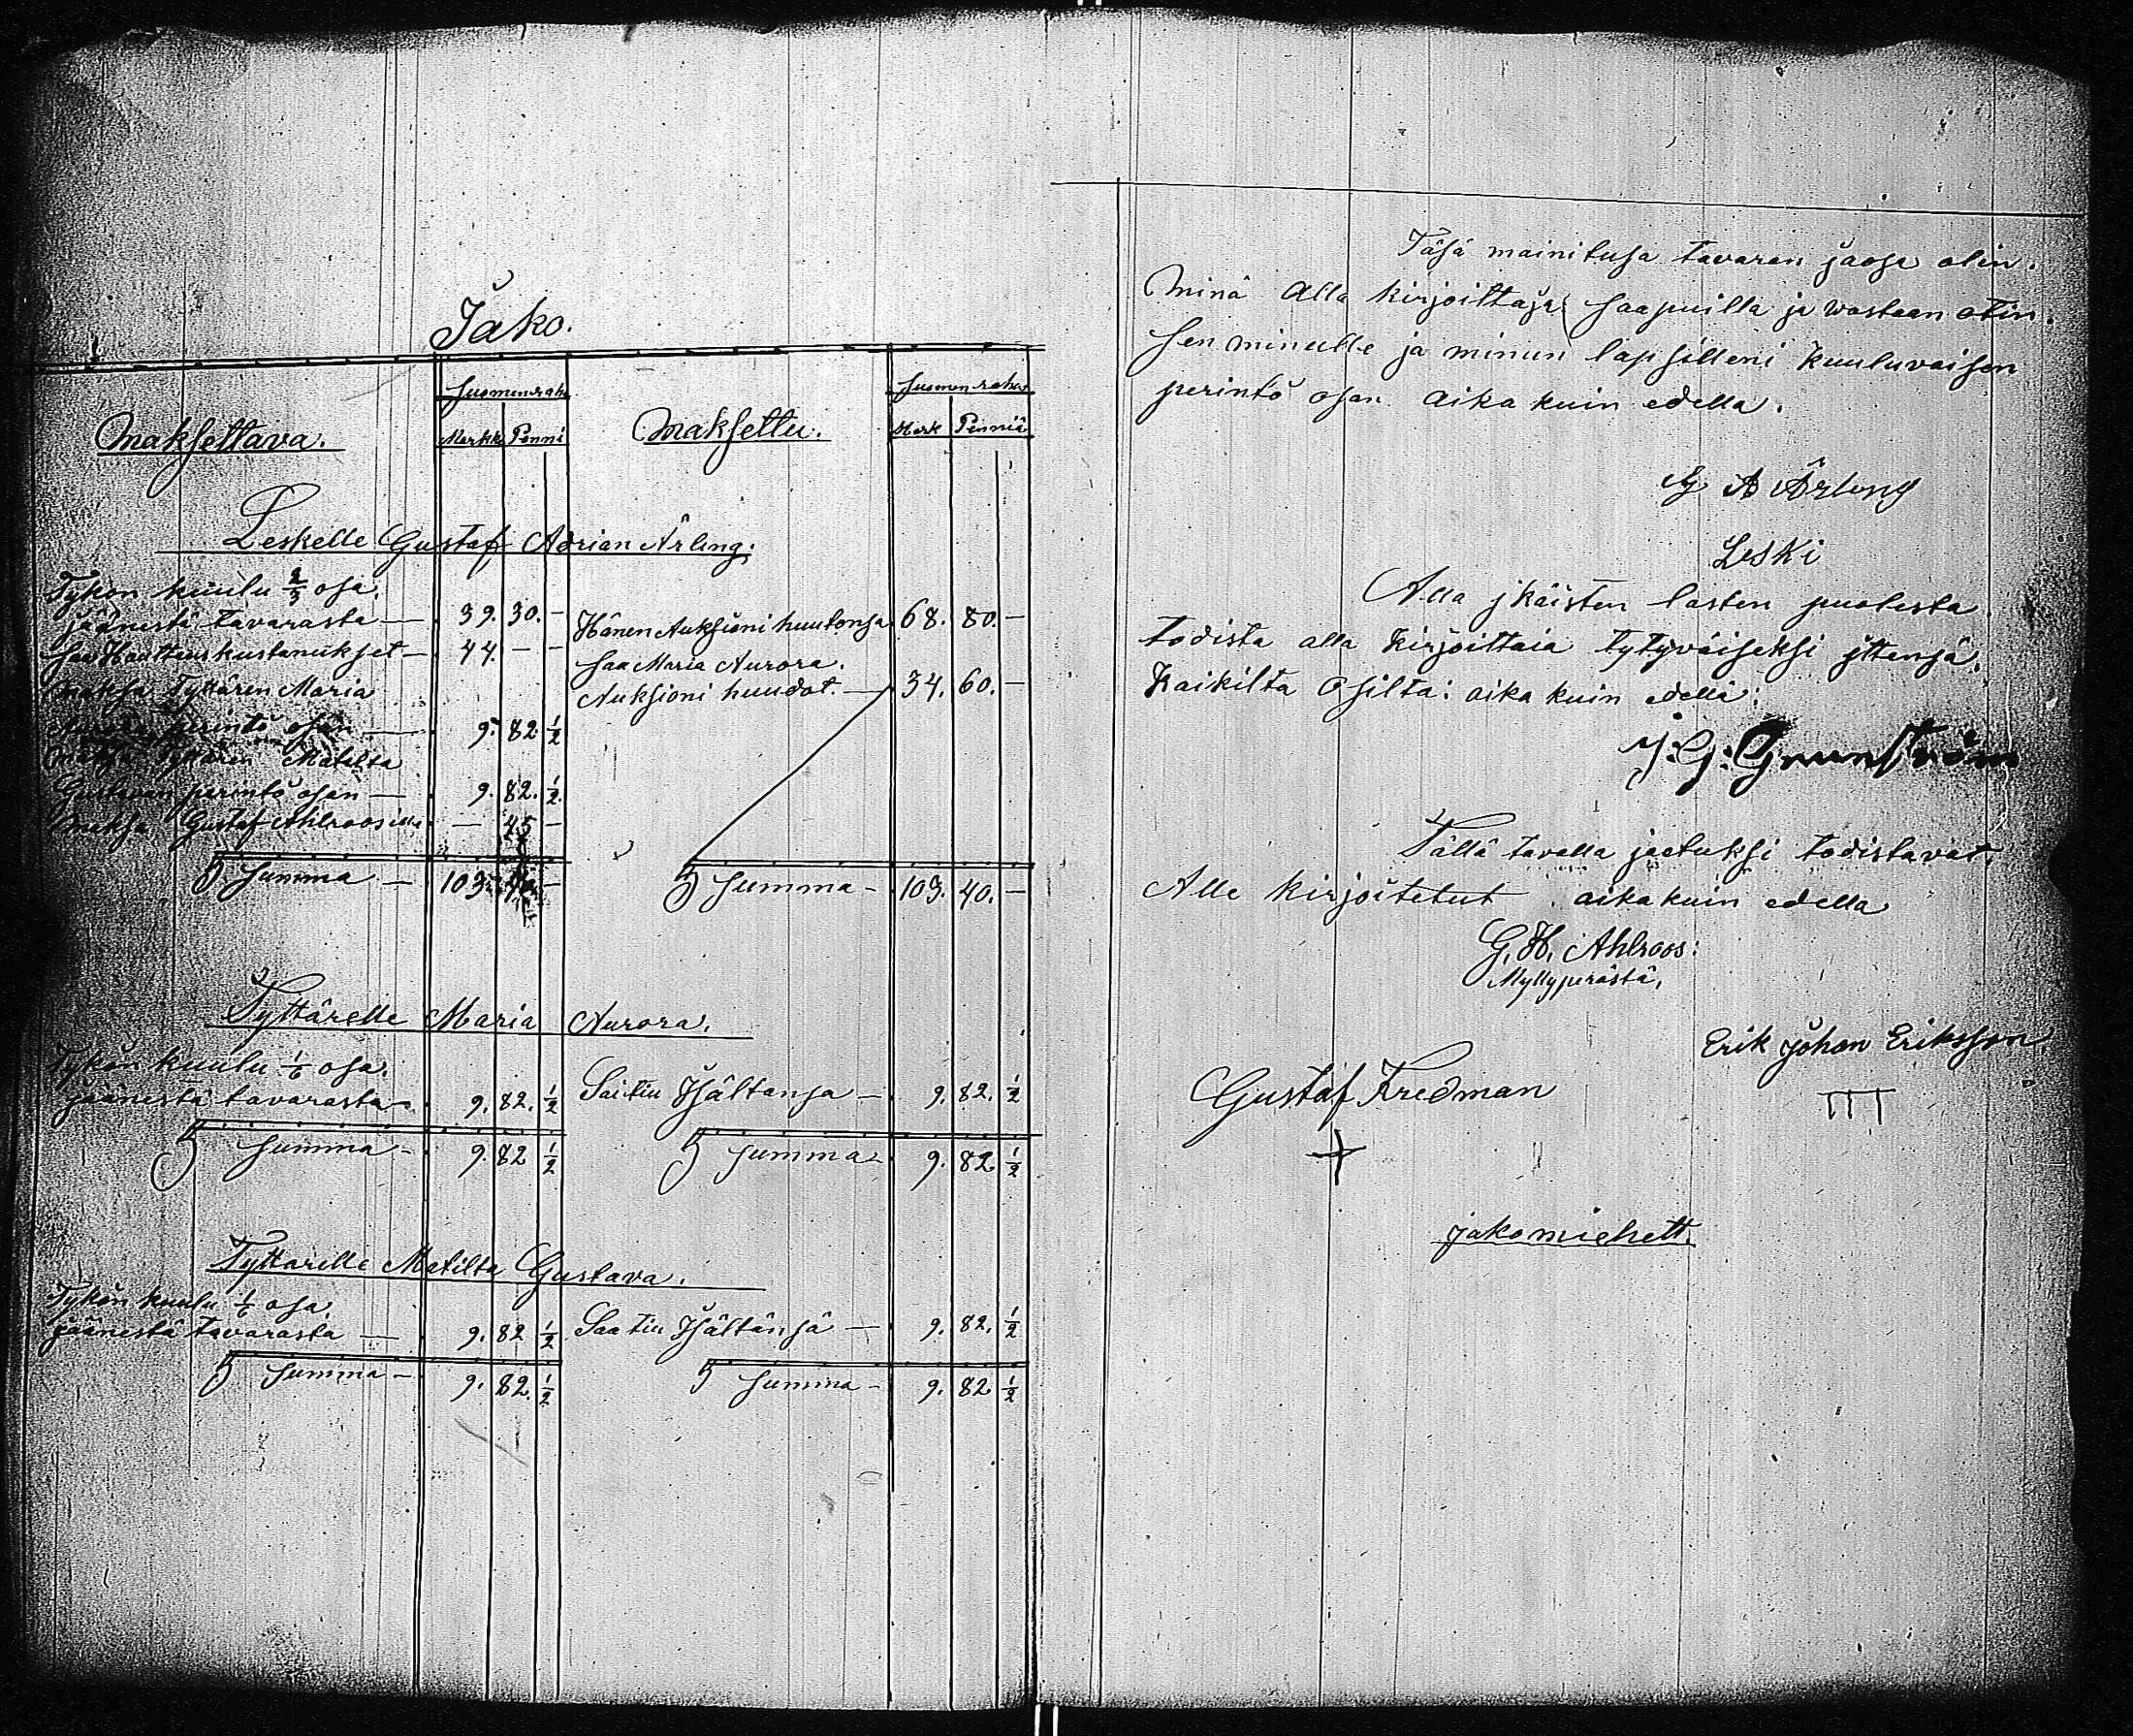 Jako.
Maksettava.
Suomenraha
Markk Penni
Maksettu.
Suomenraha
Mark Penniä
Leskelle Gustaf Adrian Årling.
Tykön kuulu 2/3 osa.
jäänestä tavarasta — 39. 30. —
Saa Hautteus kustanukset — 44. — —
Maksa Tyttären Maria
Auroran perintö osan — 9. 82 1/2
Maksa Tyttären Matilta
Gustavan perintö osan — 9. 82. 1/2
maksa Gustaf Ahlroosille — 45 —
Summa — 103. 40. —
Hänen Auksioni huutonsa 68. 80. —
Saa Maria Aurora.
Auksioni huudot. — 34. 60. —
Summa — 103. 40. —
Tyttärelle Maria Aurora.
Tykön kuulu 1/6 osa.
jäänestä tavarasta 9. 82. 1/2
Summa — 9. 82 1/2
Saitiu Isältänsa — 9. 82. 1/2
Summa — 9. 82. 1/2
Tyttarille Matilta Gustava.
Tykön kuulu 1/6 osa.
jäänestä tavarasta — 9. 82 1/2
Summa — 9. 82. 1/2
Saatiu Isältänsä — 9. 82. 1/2
Summa — 9. 82 1/2
Täsä mainitusa tavaran jaosa olin.
Minä alla kirjoittaja saapuilla ja wastaan otin.
Sen minulle ja minun lapsilleni kuuluvaisen
perintö osan aika kuin edella.
A Årling
Leski
Alla jkäisten lasten puolesta
todista alla kirjoittaia tytyväiseksi ittensä.
Kaikilta osilta: aika kuin edellä:
J: G: Grunström
Tällä tavalla jaetuksi todistavat.
Alle kirjoitetut aika kuin edella
G. H. Ahlroos:
Myllyperästä.
Erik Johan Eriksson.
Gustaf Fredman
jakomiehett.